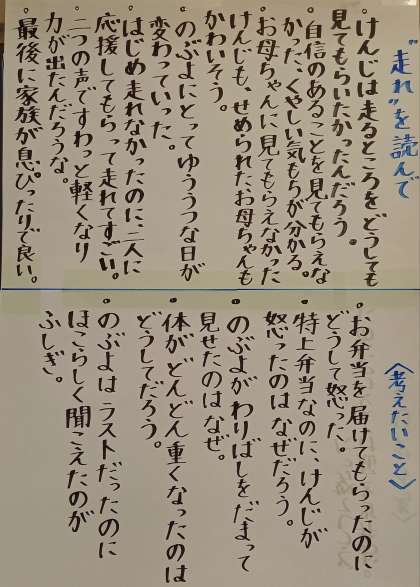 "走れ"を読んで
・けんじは走るところをどうしても
見てもらいたかったんだろう。
・自信のあることを見てもらえな
かった、くやしい気もちが分かる。
・お母ちゃんに見てもらえなかった
けんじも、せめられたお母ちゃんも
かわいそう。
・のぶよにとってゆううつな日が
変わっていった。
・はじめ走れなかったのに、二人に
応援してもらって走れてすごい。
・二つの声ですわっと軽くなり
力が出たんだろうな。
・最後に家族が息ぴったりで良い。
〈考えたいこと〉
・お弁当を届けてもらったのに
どうして怒った。
・特上弁当なのに、けんじが
怒ったのはなぜだろう。
・のぶよがわりばしをだまって
見せたのはなぜ。
・体がどんどん重くなったのは
どうしてだろう。
・のぶよはラストだったのに
ほこらしく聞こえたのが
ふしぎ。